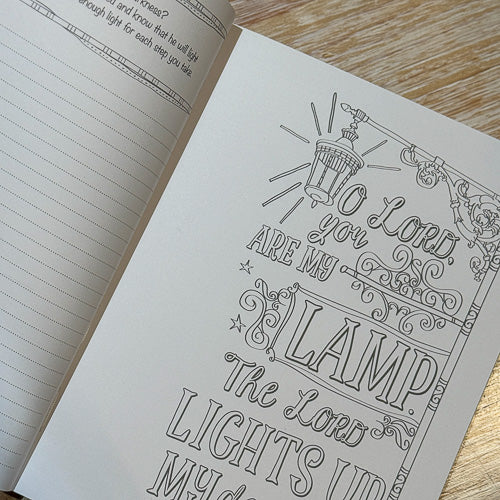 rkness?
ed and know that he will light
enough light for each step you take.
O LORD,
you
ARE MY
LAMP.
The LORD
LIGHTS UP
MY